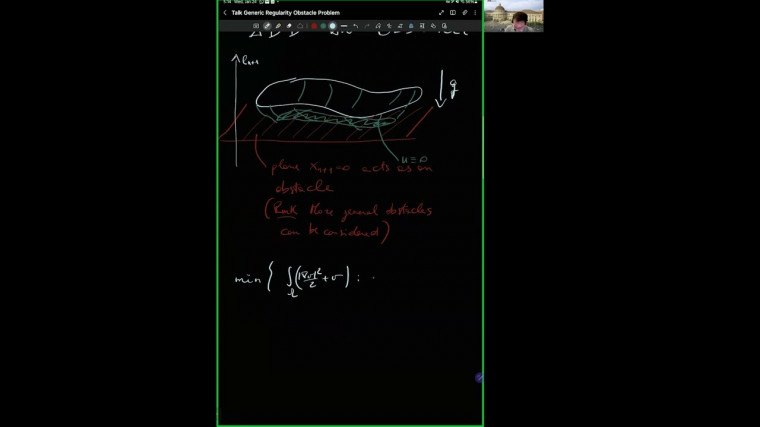 Talk Generic Regularity Obstacle Problem
g
u ≡ 0
plane x_{n+1}=0 acts as an
obstacle
(Rmk More general obstacles
can be considered)
min { ∫ ( |∇v|²/2 + v ) :